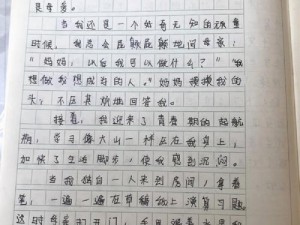 是母爱。
当我还是一个幼年无知的顽童
时候，我总会屁颠屁颠地问母亲：
“妈妈，以后我可以做什么？”“做
想做我想成为的人。”妈妈摸摸我的
头，不厌其烦地回答我。
接着，我迎来了青春期的起航
期，学习像大山一样压在我身上，
加快了生活脚步，使我感到沉闷。
当我独自一人来到房间，拿着
笔，一遍一遍在草稿纸上演算习题
这时母亲打开门，手里端着水果和